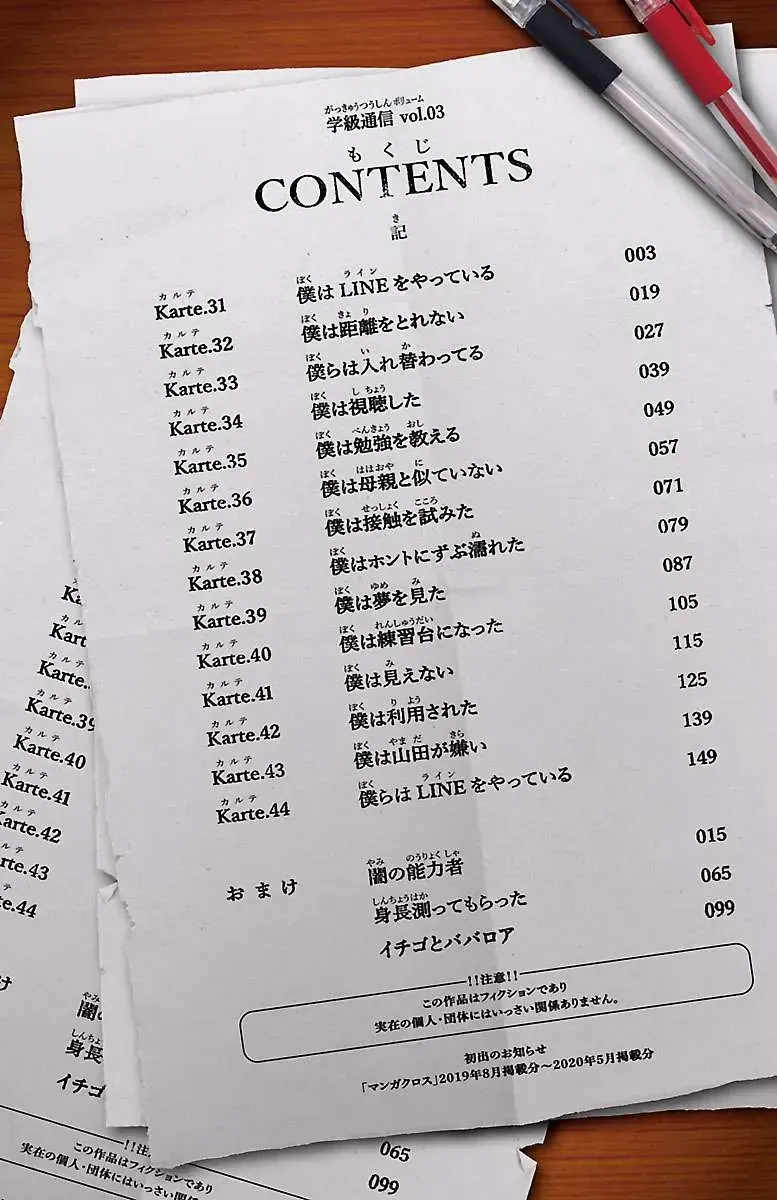 がっきゅうつうしん ボリューム
学級通信 vol.03
もくじ
CONTENTS
き
記
カルテ ぼく ライン
Karte.31 僕は LINE をやっている 003
カルテ ぼく きょり
Karte.32 僕は距離をとれない 019
カルテ ぼく い か
Karte.33 僕らは入れ替わってる 027
カルテ ぼく しちょう
Karte.34 僕は視聴した 039
カルテ ぼく べんきょう おし
Karte.35 僕は勉強を教える 049
カルテ ぼく ははおや に
Karte.36 僕は母親と似ていない 057
カルテ ぼく せっしょく こころ
Karte.37 僕は接触を試みた 071
カルテ ぼく ぬ
Karte.38 僕はホントにずぶ濡れた 079
カルテ ぼく ゆめ み
Karte.39 僕は夢を見た 087
カルテ ぼく れんしゅうだい
Karte.40 僕は練習台になった 105
カルテ ぼく み
Karte.41 僕は見えない 115
カルテ ぼく りよう
Karte.42 僕は利用された 125
カルテ ぼく やまだ きら
Karte.43 僕は山田が嫌い 139
カルテ ぼく ライン
Karte.44 僕らは LINE をやっている 149
やみ のうりょくしゃ
おまけ 闇の能力者 015
しんちょうはか
身長測ってもらった 065
イチゴとババロア 099
!!注意!!
この作品はフィクションであり
実在の個人・団体にはいっさい関係ありません。
初出のお知らせ
「マンガクロス」2019年8月掲載分～2020年5月掲載分
カルテ
Ka
カルテ
Kart
カルテ
Karte.
カルテ
Karte.39
カルテ
Karte.40
カルテ
Karte.41
カルテ
Karte.42
ルテ
rte.43
テ
e.44
け
やみ
闇の
しんちょ
身長
イチゴと
!!注
この作品はフィクションであり
実在の個人・団体にはいっさい関係
065
099